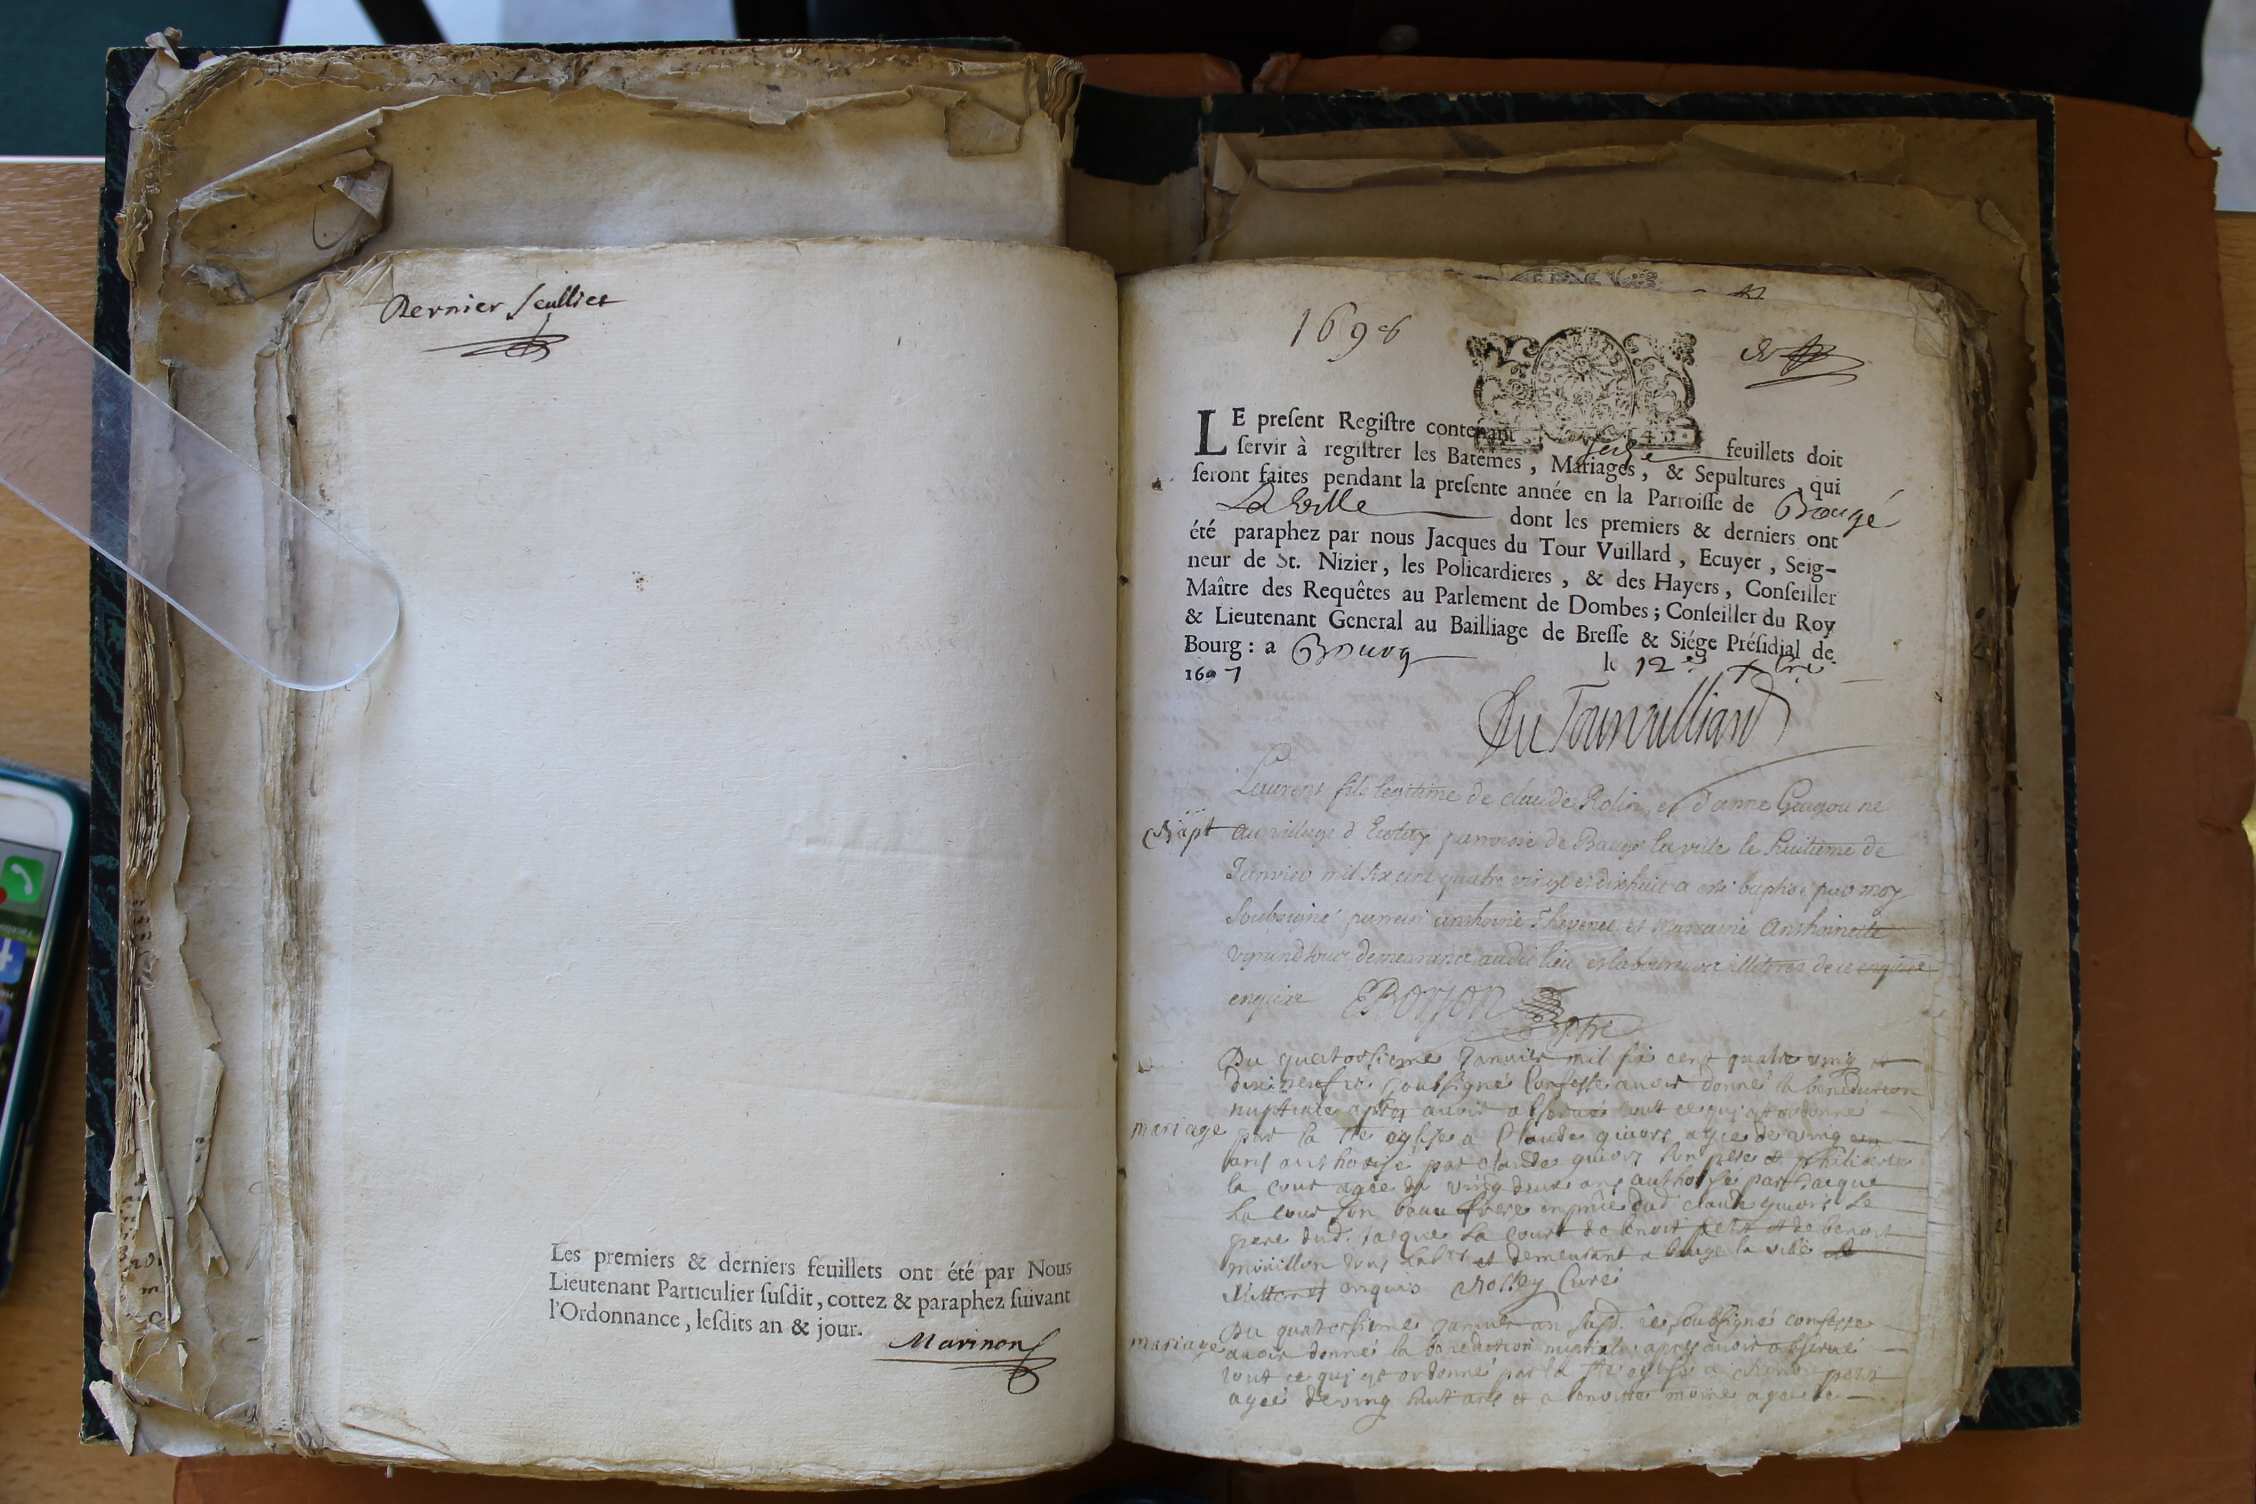 Dernier feulliet
Les premiers & derniers feuillets ont été par Nous
Lieutenant Particulier ſuſdit, cottez & paraphez ſuivant
l'Ordonnance, leſdits an & jour.
Marinon
1698
LE preſent Regiſtre contenant ſeize feuillets doit
ſervir à regiſtrer les Batêmes, Mariages, & Sepultures, qui
ſeront faites pendant la preſente année en la Parroiſſe de Baugé
La Ville dont les premiers & derniers ont
été paraphez par nous Jacques du Tour Vuillard, Ecuyer, Seig-
neur de St. Nizier, les Policardieres, & des Hayers, Conſeiller
Maître des Requêtes au Parlement de Dombes; Conſeiller du Roy
& Lieutenant General au Bailliage de Breſſe & Siége Préſidial de
Bourg: a Bourg le 12e Xbre
1697
Du Tourvuilliard
Laurent fils legitime de claude Rolin et d'anne Gaugou ne
Bapt au village d parroisse de Bauge la ville le huitieme de
Janvier mil six cent quatre vingt et dixhuit a esté baptisé par moy
soubsigné parrain anthoine Thevenet et marraine Anthoinette
demeurants audit lieu et laboureurs illiteres de ce enquise
enquise
Du quatorsieme Janvier mil six cent quatre ving et
soubsigné confesse avoir donné la benediction
nuptiale apres avoir observé tout ce qui est ordonné
mariage par la Ste eglise a Claude quiors agée de ving
ans authorisé par claude quiors son pere et philiberte
la cour agée de ving deux ans authorisé par Jacque
la cour son beau frere claude quiors le
pere dud. Jacque la court de benoit petit et de benoit
et demeurant a bauge la ville
enquis Curé
Du quatorsieme Janvier an susd. ie soubsigné confesse
mariage avoir donné la benediction nuptiale apres avoir observé
tout ce qui est ordonné par la Ste eglise a petit
agée de ving huit ans et a moine agée de